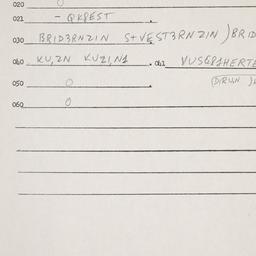 020 O
021 - QKPEST .
030 BRID3RNZIN S+VEST3RNZIN )BRID
040 KU,ZN KUZI,N1 . 041 VUSGP1HERTE
(DIRUN )
050 O .
060 O